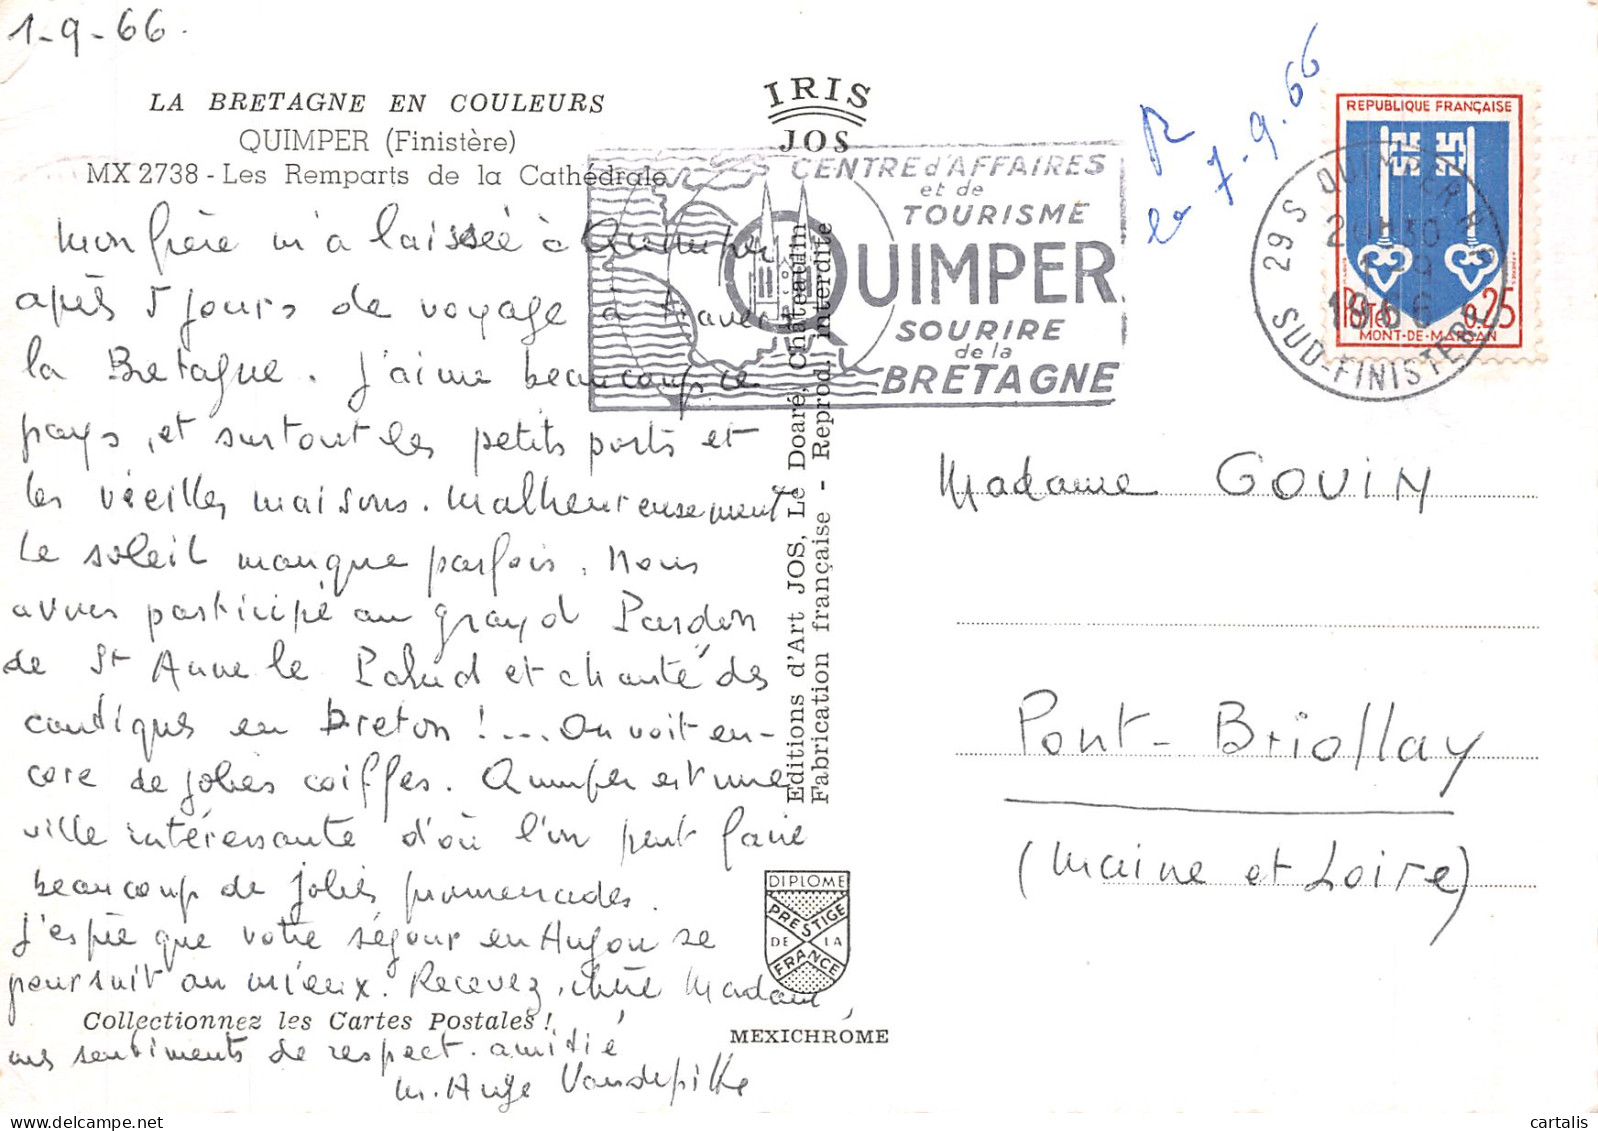 1-9-66.
LA BRETAGNE EN COULEURS
QUIMPER (Finistère)
MX 2738 - Les Remparts de la Cathédrale
Mon frère m'a laissée à Quimper
après 5 jours de voyage à travers
la Bretagne. J'aime beaucoup ce
pays, et surtout les petits ports et
les vieilles maisons. Malheureusement
le soleil manque parfois. Nous
avons participé au grand Pardon
de St Anne la Palud et chanté des
cantiques en breton !... On voit en-
core de jolies coiffes. Quimper est une
ville intéressante d'où l'on peut faire
beaucoup de jolies promenades.
J'espère que votre séjour en Anjou se
poursuit au mieux. Recevez, chère Madame,
Collectionnez les Cartes Postales !
mes sentiments de respect. amitié
M. Ange Vandepitte
IRIS
JOS
Editions d'Art JOS, Le Doaré, Châteaulin
Fabrication française - Reprod. interdite
DIPLOME
PRESTIGE
DE LA
FRANCE
MEXICHROME
CENTRE d'AFFAIRES
et de
TOURISME
QUIMPER
SOURIRE
de la
BRETAGNE
R
le 7-9.66
29 S QUIMPER
1-9
1966
SUD-FINISTERE
REPUBLIQUE FRANÇAISE
Postes 0,25
MONT-DE-MARSAN
Madame GOUIN
Pont-Briollay
(Maine et Loire)
cartalis